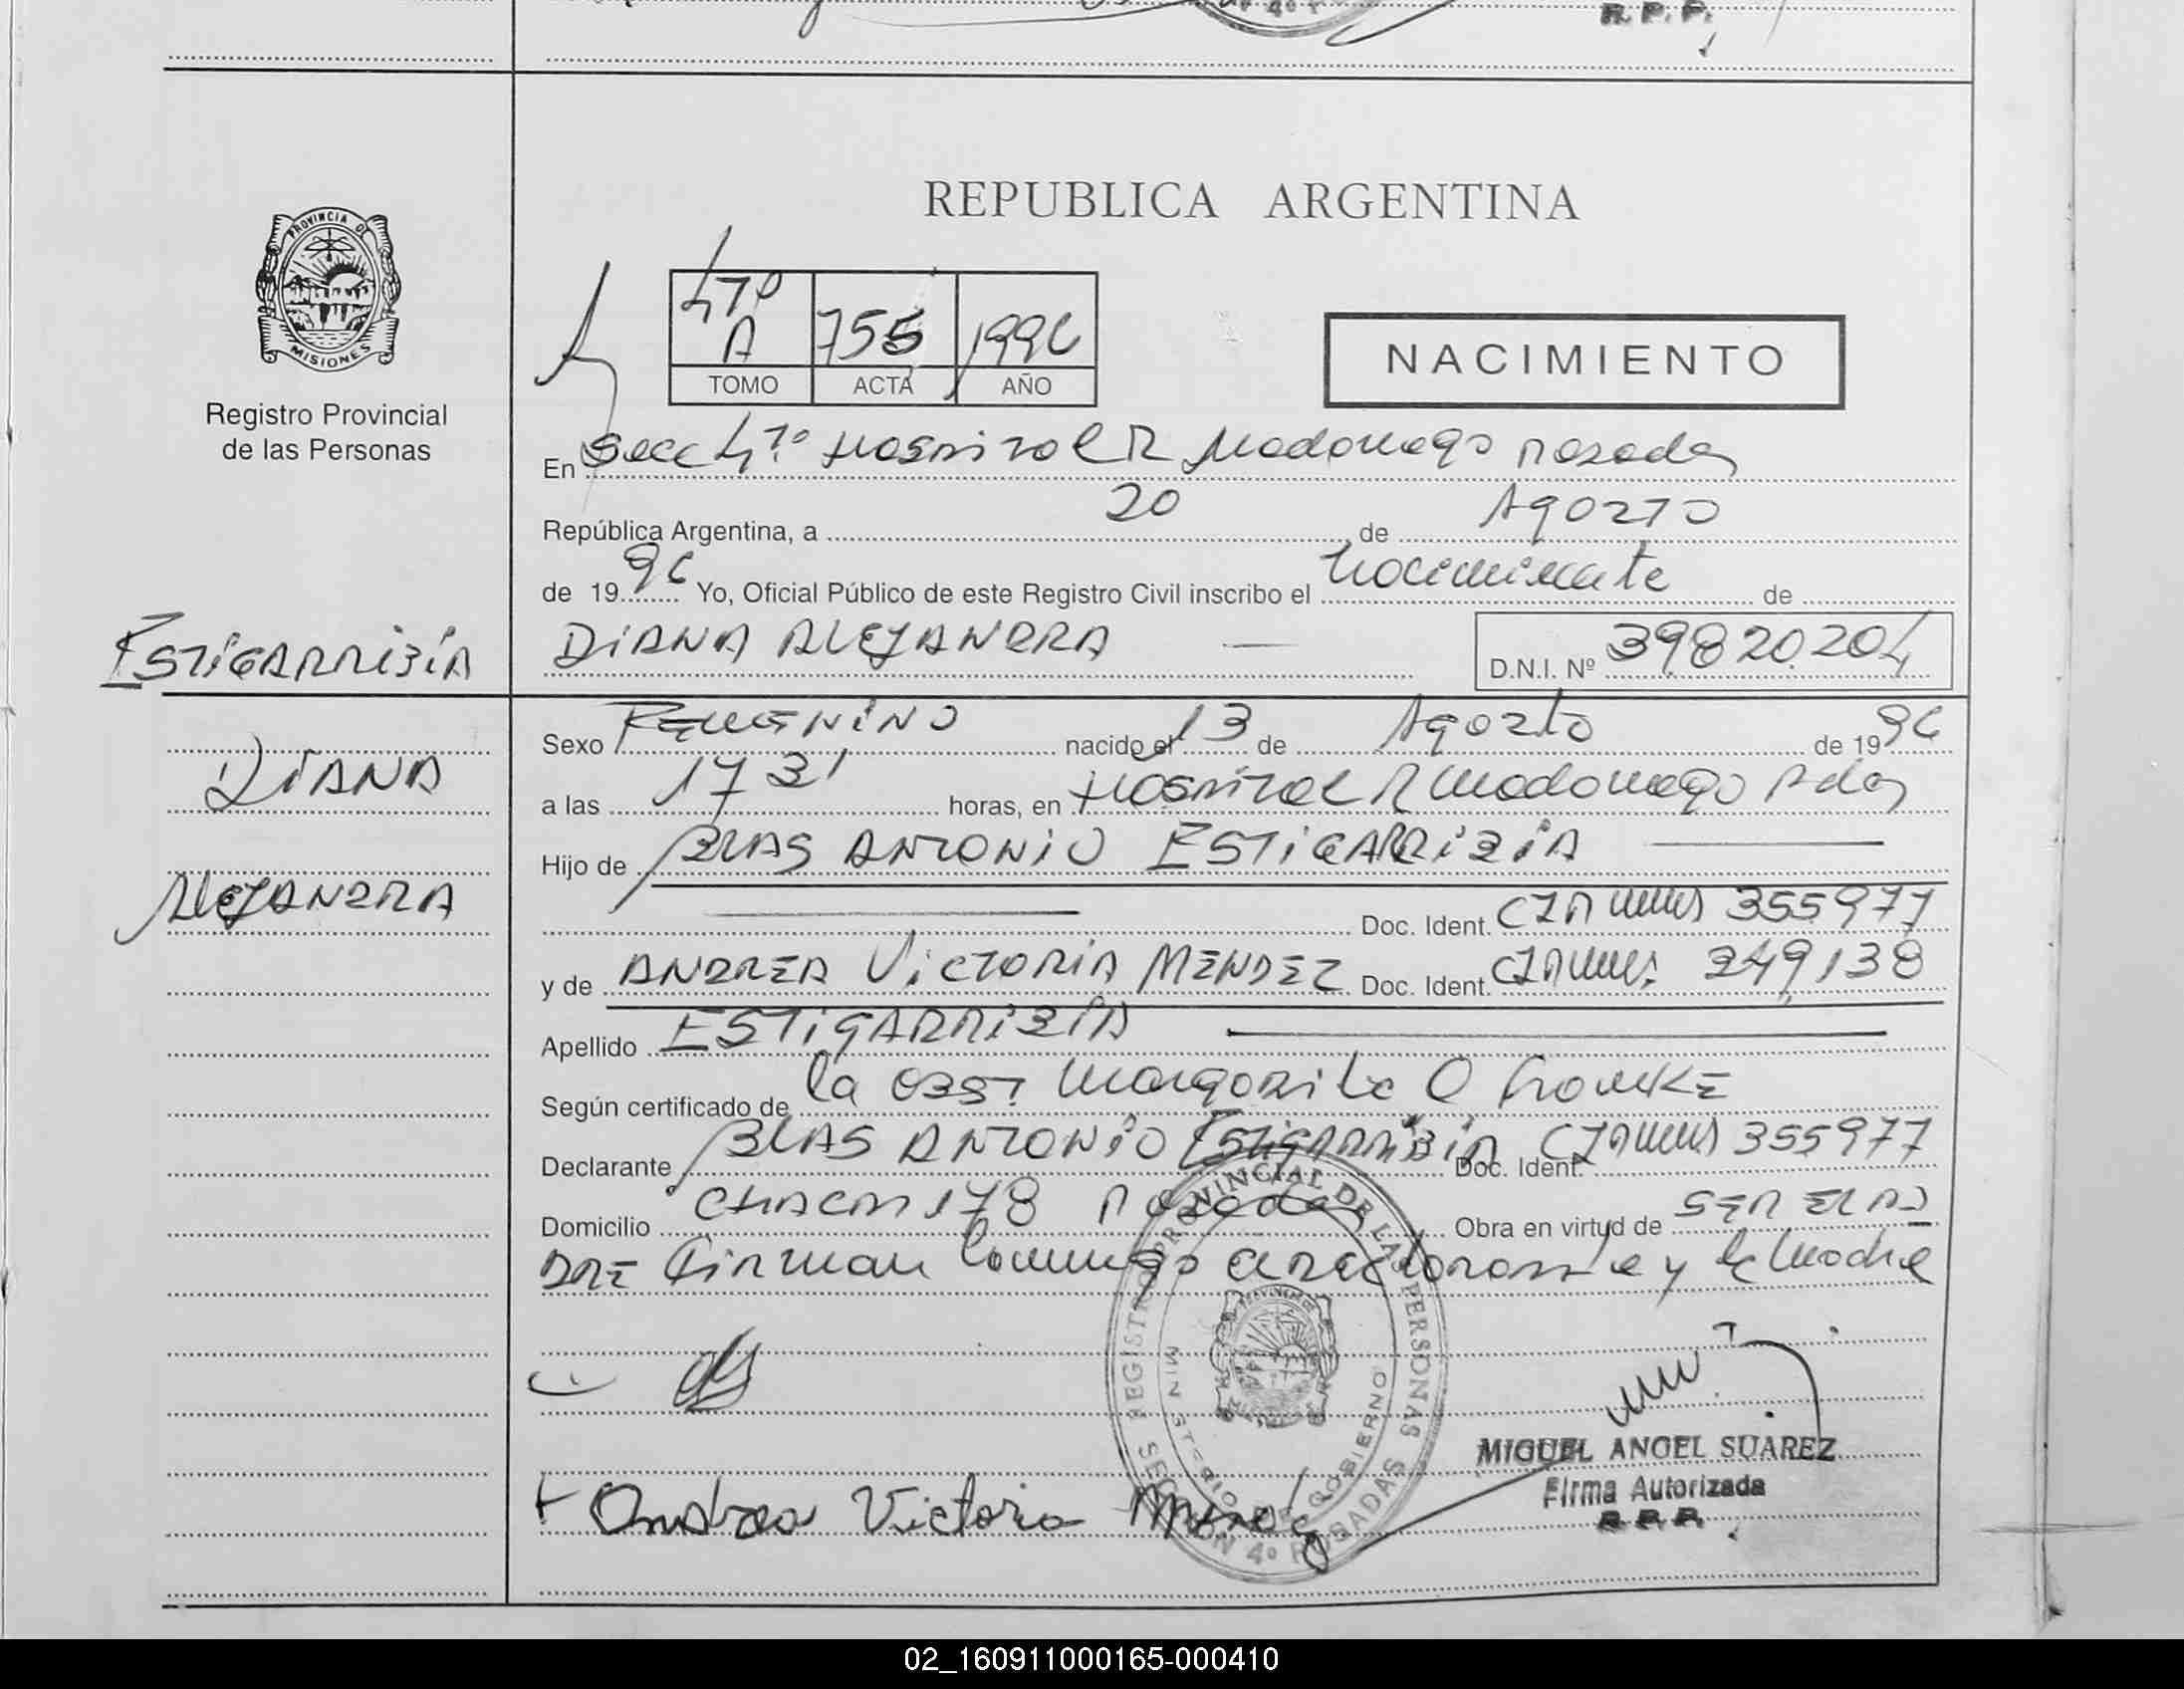 R. P. P.
REPUBLICA ARGENTINA
PROVINCIA DE
MISIONES
Registro Provincial
de las Personas
4º A 755 1996
TOMO ACTA AÑO
NACIMIENTO
En Secc 4º Hospital R Madariaga Posadas
República Argentina, a 20 de Agosto
de 1996 Yo, Oficial Público de este Registro Civil inscribo el nacimiento de
DIANA ALEJANDRA D.N.I. Nº 39820204
ESTIGARRIBIA
DIANA
ALEJANDRA
Sexo FEMENINO nacido el 13 de Agosto de 1996
a las 17 31 horas, en Hospital R Madariaga Pdas
Hijo de BLAS ANTONIO ESTIGARRIBIA
Doc. Ident. 355977
y de ANDREA VICTORIA MENDEZ Doc. Ident. 249138
Apellido ESTIGARRIBIA
Según certificado de la OBST Margarita O
Declarante BLAS ANTONIO ESTIGARRIBIA Doc. Ident. 355977
Domicilio CHACO 178 Posadas Obra en virtud de SER EL PA
DRE Firman conmigo el declarante y la Madre
REGISTRO PROVINCIAL DE LAS PERSONAS
MINISTERIO DE GOBIERNO
SECCION 4º POSADAS
MIGUEL ANGEL SUAREZ
Firma Autorizada
R. P. P.
Andrea Victoria Mendez
02_160911000165-000410